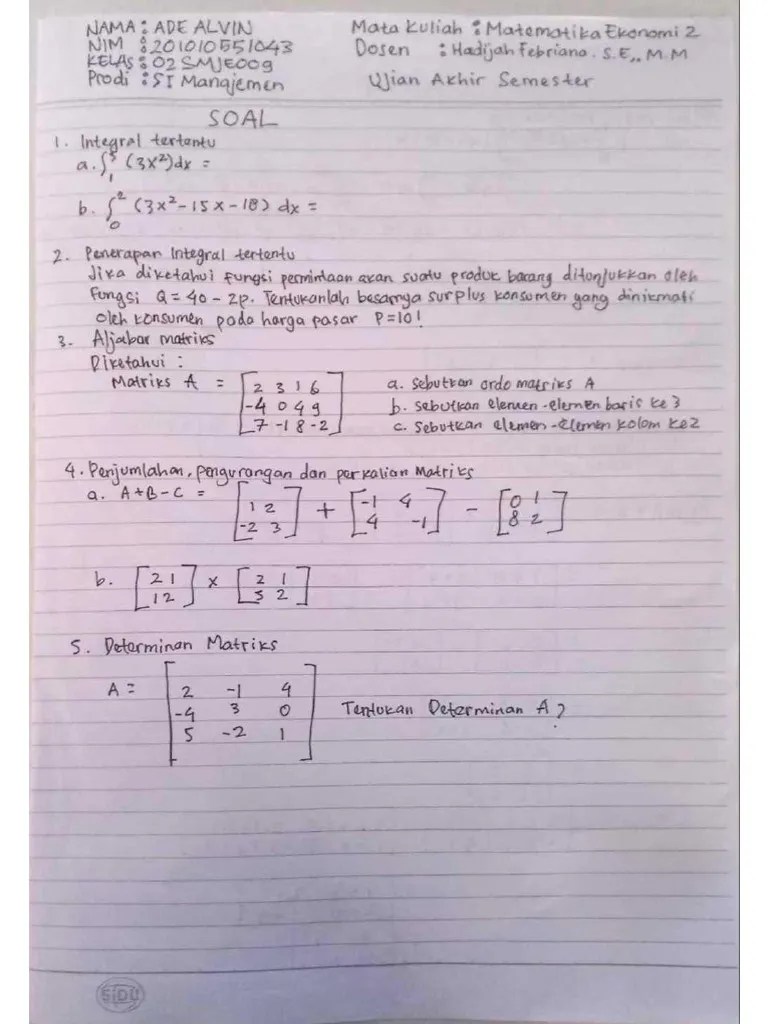 NAMA : ADE ALVIN
NIM : 201010551043
KELAS : 02SMJE009
Prodi : S1 Manajemen
Mata Kuliah : Matematika Ekonomi 2
Dosen : Hadijah Febriana. S.E,, M.M
Ujian Akhir Semester
SOAL
1. Integral tertentu
a. ∫₁⁵ (3x²)dx =
b. ∫₀² (3x²-15x-18) dx =
2. Penerapan Integral tertentu
Jika diketahui fungsi permintaan akan suatu produk barang ditunjukkan oleh
fungsi Q = 40 - 2p. Tentukanlah besarnya surplus konsumen yang dinikmati
oleh konsumen pada harga pasar P=10!
3. Aljabar matriks
Diketahui :
Matriks A = [2 3 1 6
-4 0 4 9
7 -1 8 -2]
a. Sebutkan ordo matriks A
b. Sebutkan elemen-elemen baris ke 3
c. Sebutkan elemen-elemen kolom ke 2
4. Penjumlahan, pengurangan dan perkalian Matriks
a. A+B-C = [1 2
-2 3] + [-1 4
4 -1] - [0 1
8 2]
b. [2 1
1 2] x [2 1
3 2]
5. Determinan Matriks
A = [2 -1 4
-4 3 0
5 -2 1]
Tentukan Determinan A?
SiDU